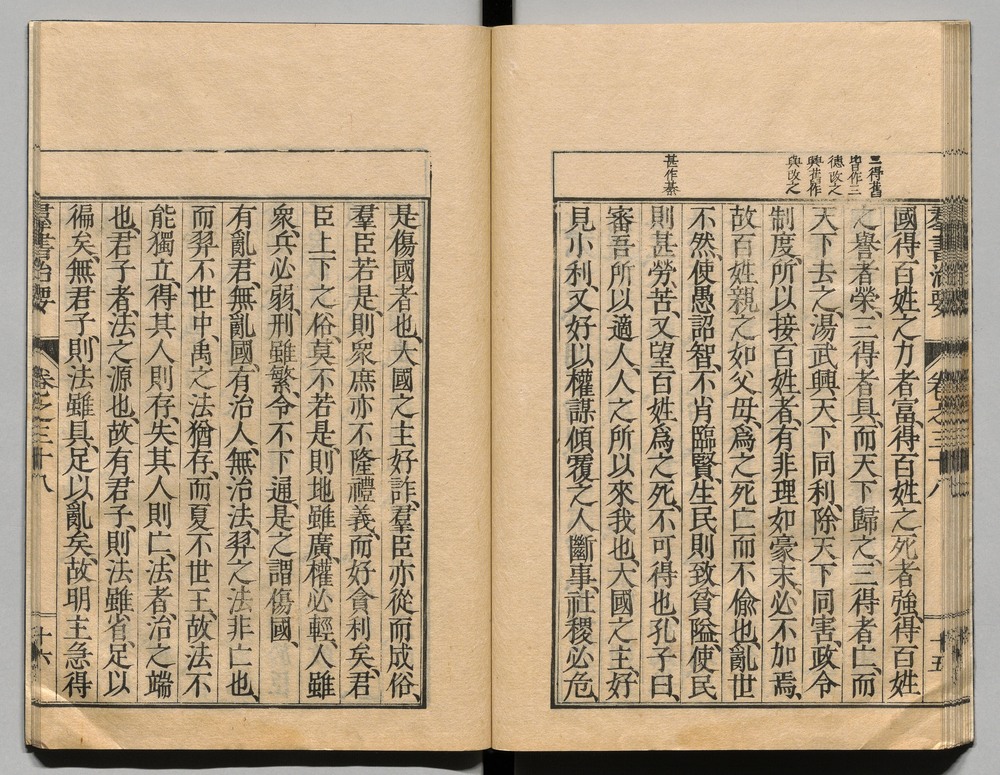 三得舊
皆作三
德改之
興舊作
與改之
甚作綦
羣書治要
卷之三十八
十五
國得百姓之力者富、得百姓之死者強、得百姓
之譽者榮、三得者具、而天下歸之、三得者亡、而
天下去之、湯武興天下同利、除天下同害政令
制度、所以接百姓者、有非理如豪末、必不加焉、
故百姓親之如父母、爲之死亡而不偷也、亂世
不然、使愚詔智、不肖臨賢、生民則致貧隘、使民
則甚勞苦、又望百姓爲之死、不可得也、孔子曰、
審吾所以適人、人之所以來我也、大國之主、好
見小利、又好以權謀傾覆之人斷事、社稷必危、
是傷國者也、大國之主好詐、羣臣亦從而成俗、
羣臣若是、則衆庶亦不隆禮義、而好貪利矣、君
臣上下之俗、莫不若是、則地雖廣、權必輕、人雖
衆、兵必弱、刑雖繁、令不下通、是之謂傷國、
有亂君、無亂國、有治人、無治法、羿之法非亡也、
而羿不世中、禹之法猶存、而夏不世王、故法不
能獨立、得其人則存、失其人則亡、法者、治之端
也、君子者、法之源也、故有君子、則法雖省、足以
徧矣、無君子、則法雖具、足以亂矣、故明主急得
羣書治要
卷之三十八
十六